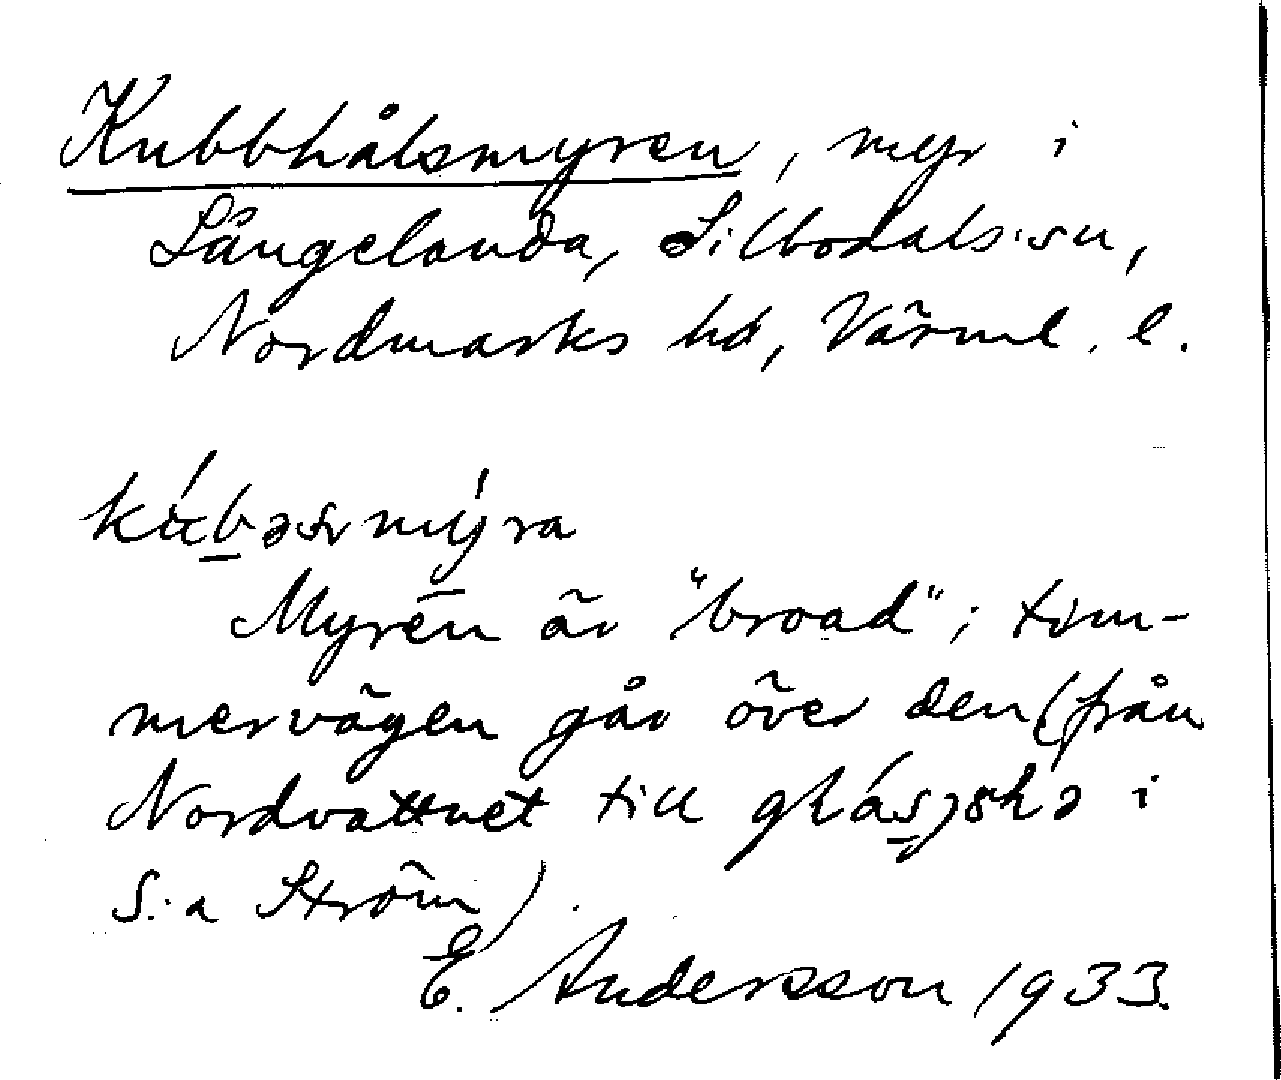 Kubbhålsmyren, myr i
Långelanda, Silbodals sn,
Nordmarks hd, Värml. l.
Myren är "broad"; tim-
mervägen går över den (från
Nordvattnet till i
S:a Ström)
E. Andersson 1933.